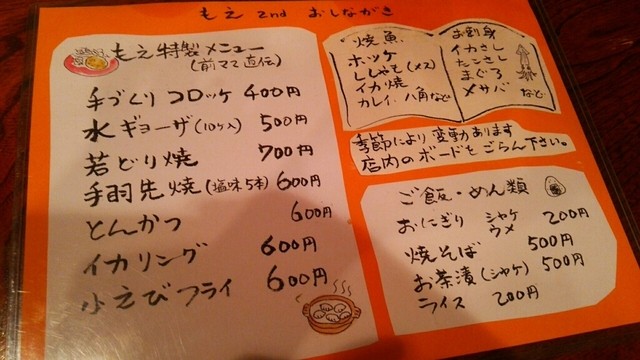 もえ 2nd おしながき
もえ特製メニュー
(前ママ直伝)
手づくりコロッケ 400円
水ギョーザ(10ヶ入) 500円
若どり焼 700円
手羽先焼(塩味5本) 600円
とんかつ 600円
イカリング 600円
小えびフライ 600円
焼魚
ホッケ
ししゃも(メス)
イカ焼
カレイ、八角など
お刺身
イカさし
たこさし
まぐろ
〆サバ など
季節により変動あります
店内のボードをごらん下さい。
ご飯・めん類
おにぎり シャケ ウメ 200円
焼そば 500円
お茶漬(シャケ) 500円
ライス 200円